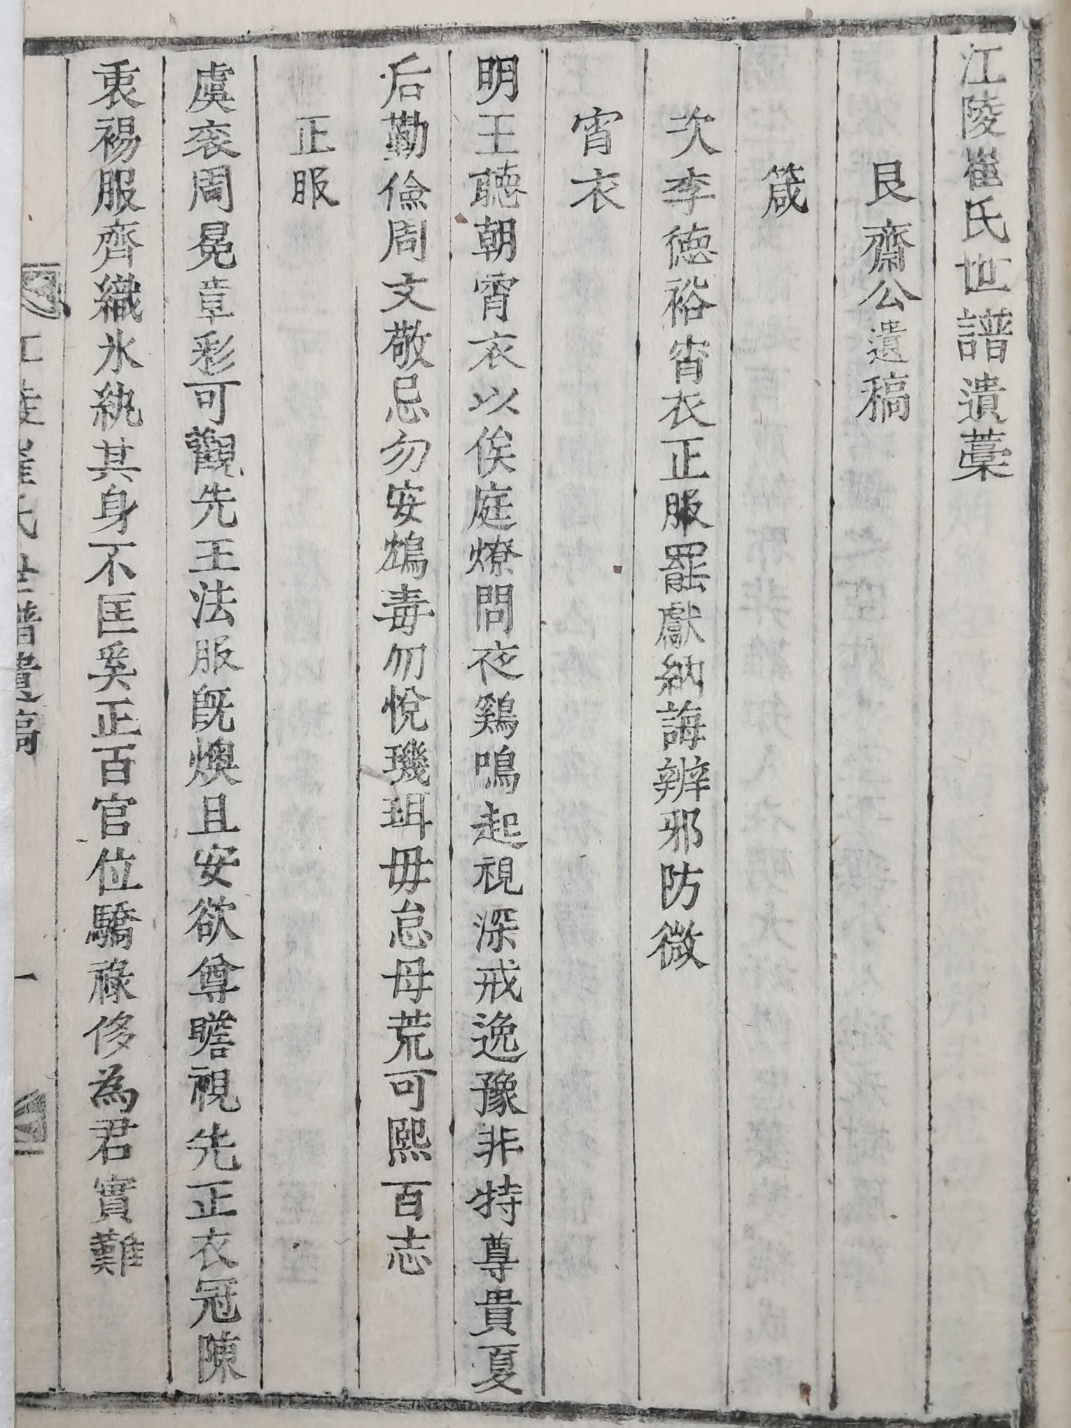 江陵崔氏世譜遺藁
艮齋公遺稿
箴
次李德裕宵衣正服罷獻納誨辨邪防微
宵衣
明王聽朝宵衣以俟庭燎問夜鷄鳴起視深戒逸豫非特尊貴夏
后勤儉周文敬忌勿安鴆毒勿悅璣珥毋怠毋荒可熙百志
正服
虞衮周冕章彩可觀先王法服旣燠且安欲尊瞻視先正衣冠陳
衷裼服齊織氷紈其身不匡奚正百官位驕祿侈為君實難
江陵崔氏世譜遺稿
一